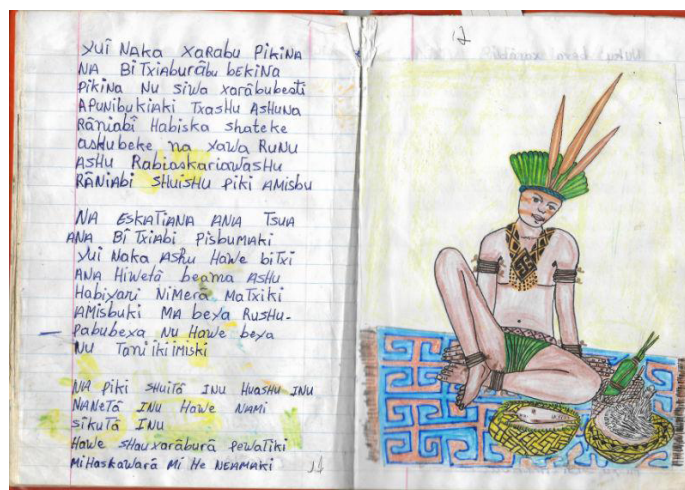 YUĨ NAKA XARABU PIKINA
NA BI TXIABURÃBU BEKINA
PIKINA NU SIWA XARÃBUBESTĨ
APUNIBUKIAKI TXASHU ASHUNA
RÃNIABĨ HABISKA SHATEKE
ASHUBEKE NA YAWA RUNU
ASHU RABIASKARIAWASHU
RÃNIABI SHUISHU PIKI AMISBU
NA ESKATIANA ANIA TSUA
ANA BĨ TXIABI PISBUMAKI
YUI NAKA ASHU HAWE BITXI
ANA HIWETÃ BEAMA ASHU
HABIYARI NIMERA MATXIKI
AMISBUKI MA BEYA RUSHU-
PABUBEXA NU HAWE BEYA
NU TANI IKI IMISKI
NA PIKI SHUITÃ INU HUASHU INU
NANETÃ INU HAWE NAMI
SIKUTÃ INU
HAWE SHAUXARÃBURÃ PEWATIKI
MI HASKAWARÃ MI HE NEAMAKI
14